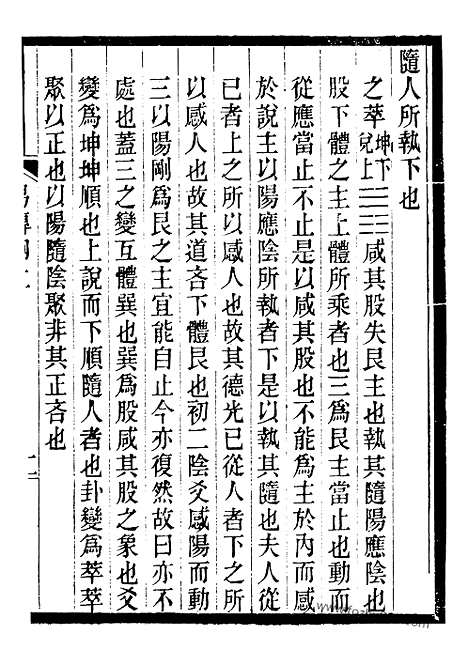 隨人所執下也
之萃坤下兌上☱☷咸其股失艮主也執其隨陽應陰也
股下體之主上體所乘者也三爲艮主當止也動而
從應當止不止是以咸其股也不能爲主於內而感
於說主以陽應陰所執者下是以執其隨也夫人從
已者上之所以感人也故其德光已從人者下之所
以感人也故其道吝下體艮也初二陰爻感陽而動
三以陽剛爲艮之主宜能自止今亦復然故曰亦不
處也蓋三之變互體巽也巽爲股咸其股之象也爻
變爲坤坤順也上說而下順隨人者也卦變爲萃萃
聚以正也以陽隨陰聚非其正吝也